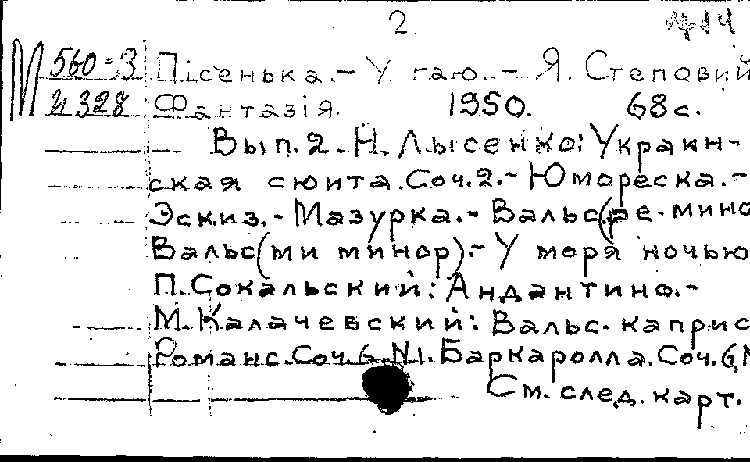 2
М 560-3 Пісенька.- У гаю.- Я. Степовий
И 328 Фантазія. 1950. 68с.
Вып.2. Н. Лысенко: Украин-
ская сюита. Соч.2.- Юмореска.-
Эскиз.- Мазурка.- Вальс(ре-мино
Вальс(ми минор).- У моря ночью
П. Сокальский: Андантино.-
М. Калачевский: Вальс-каприс
Романс. Соч.6, N1. Баркаролла. Соч.6, N
См. след. карт.